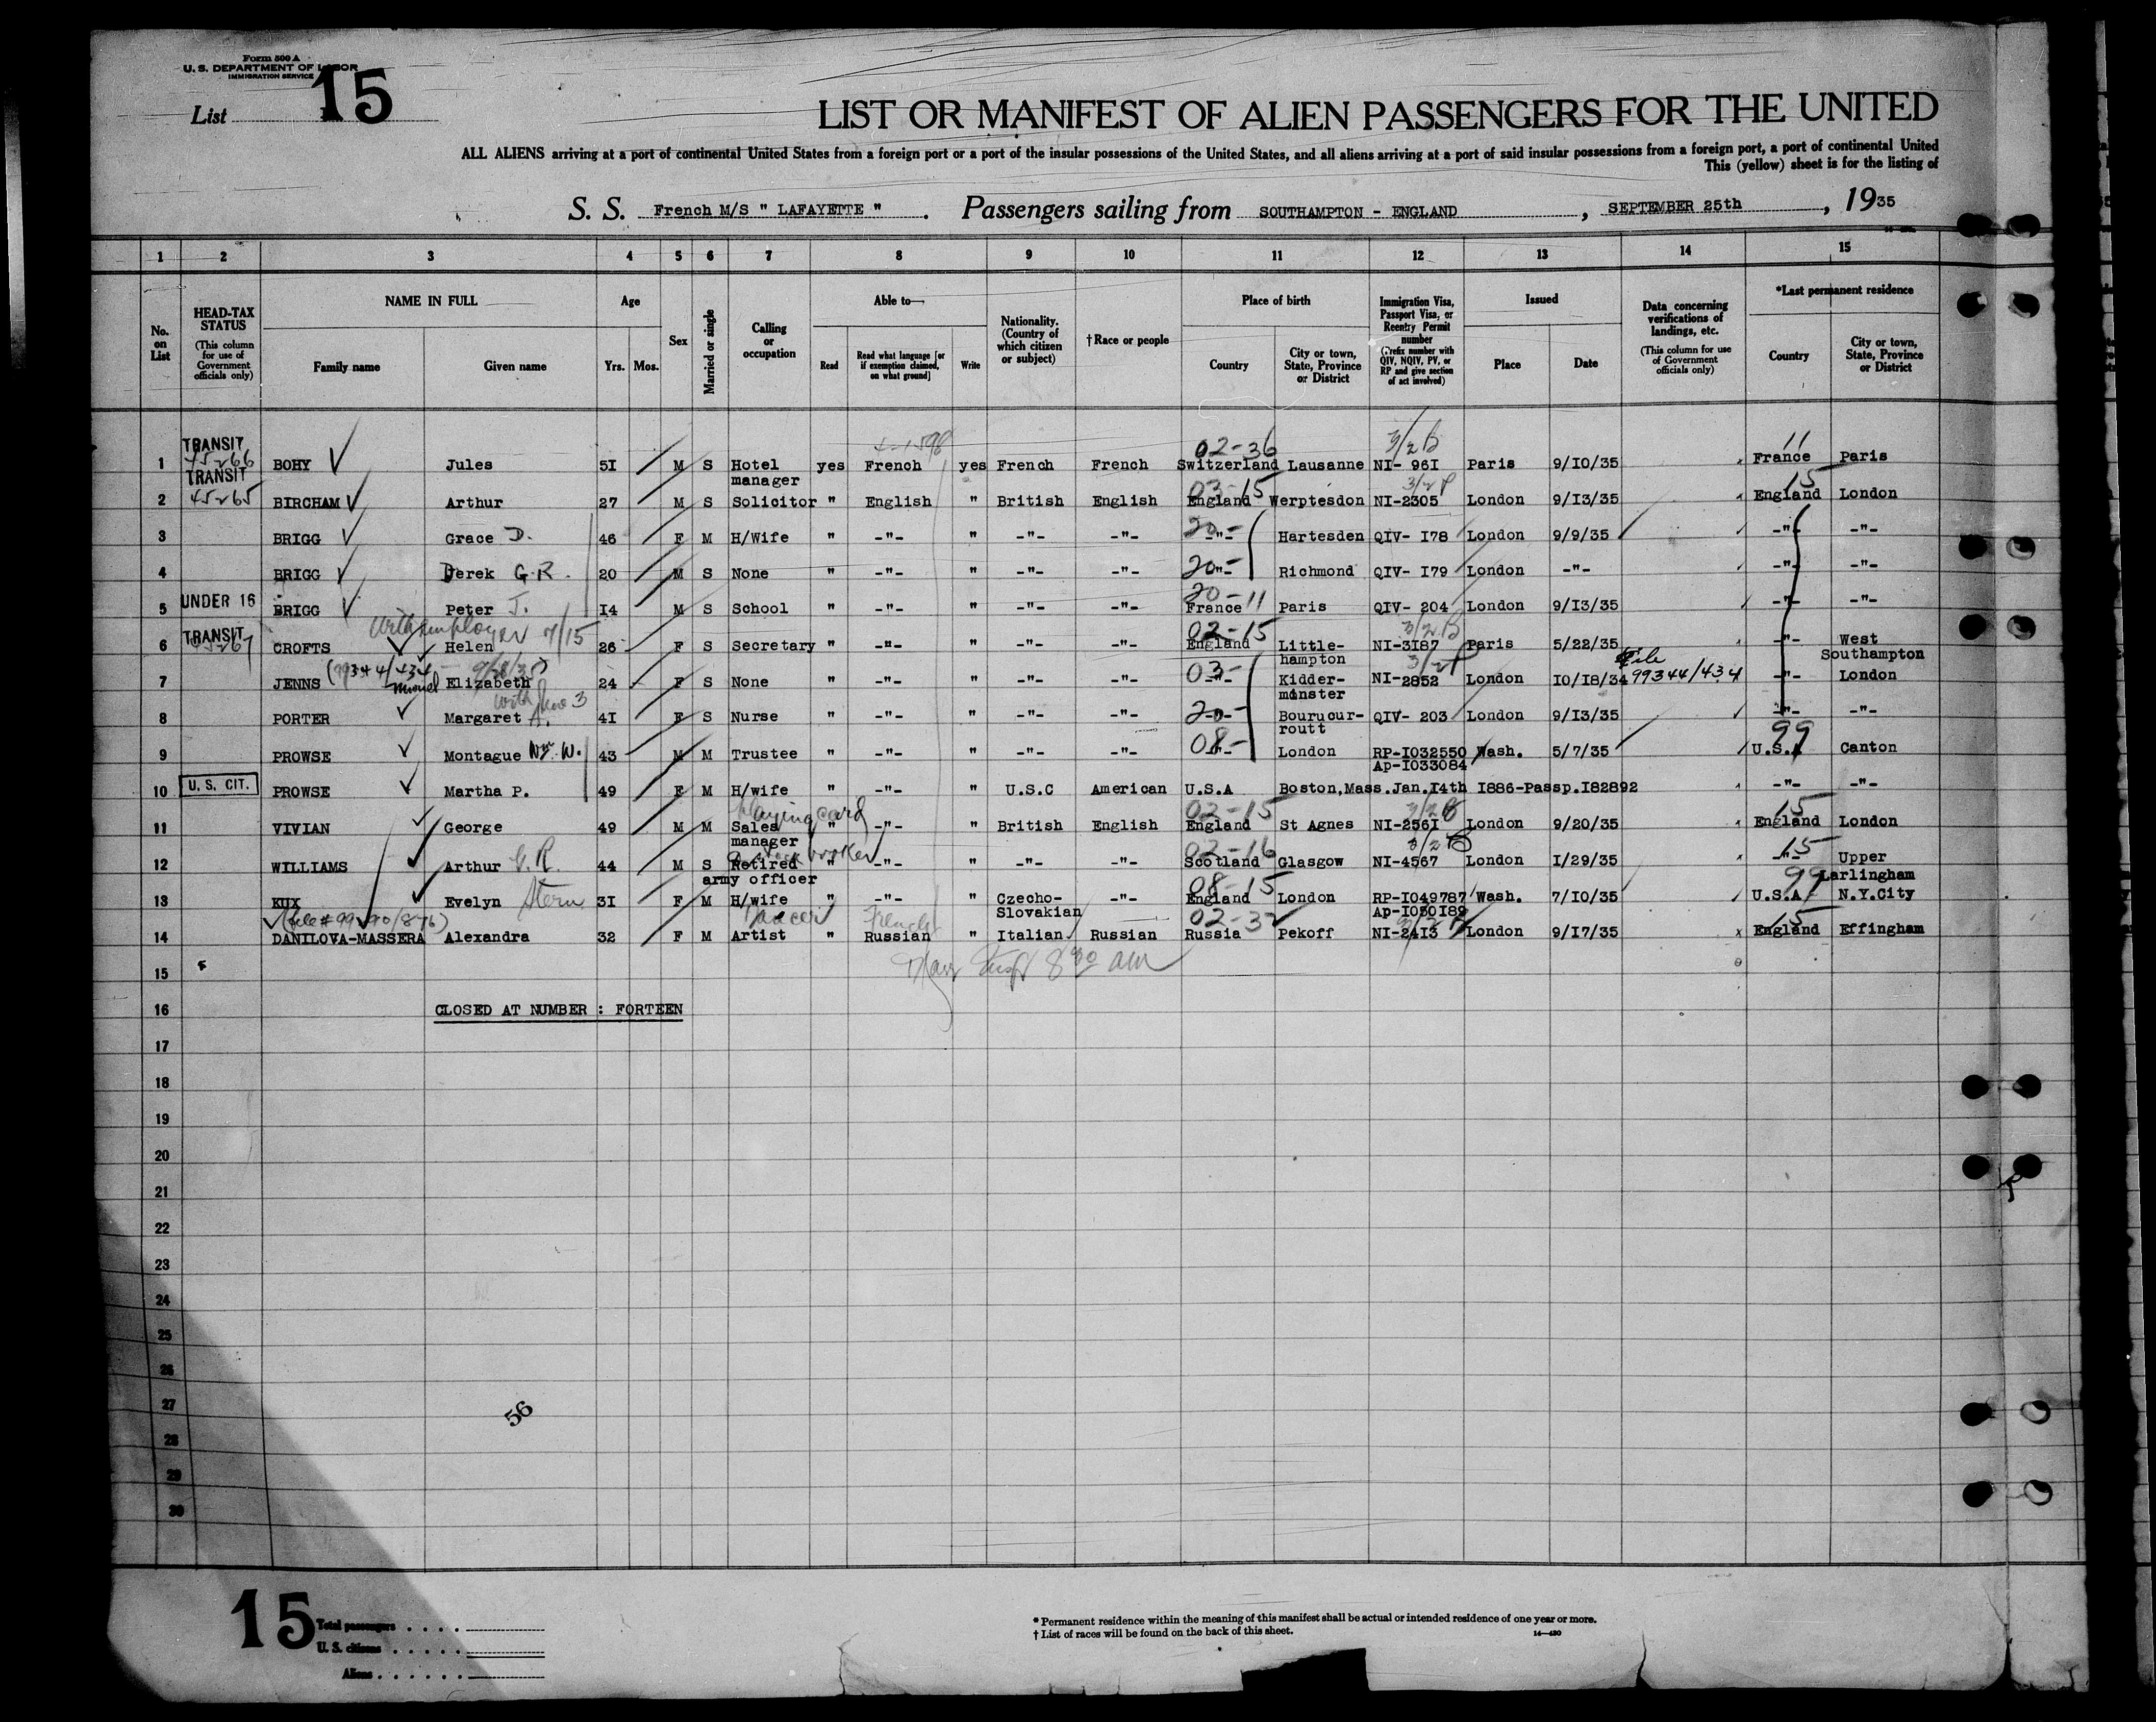 Form 500 A
U. S. DEPARTMENT OF LABOR
IMMIGRATION SERVICE
List 15
LIST OR MANIFEST OF ALIEN PASSENGERS FOR THE UNITED
ALL ALIENS arriving at a port of continental United States from a foreign port or a port of the insular possessions of the United States, and all aliens arriving at a port of said insular possessions from a foreign port, a port of continental United
This (yellow) sheet is for the listing of
S. S. French M/S " LAFAYETTE " . Passengers sailing from SOUTHAMPTON - ENGLAND , SEPTEMBER 25th , 1935
1 2 3 4 5 6 7 8 9 10 11 12 13 14 15
No. on List
HEAD-TAX STATUS (This column for use of Government officials only)
NAME IN FULL
Family name Given name
Age
Yrs. Mos.
Sex
Married or single
Calling or occupation
Able to—
Read Read what language [or if exemption claimed, on what ground] Write
Nationality. (Country of which citizen or subject)
† Race or people
Place of birth
Country City or town, State, Province or District
Immigration Visa, Passport Visa, or Reentry Permit number (Prefix number with QIV, NQIV, PV, or RP and give section of act involved)
Issued
Place Date
Data concerning verifications of landings, etc. (This column for use of Government officials only)
*Last permanent residence
Country City or town, State, Province or District
02-36 3/2B 11
TRANSIT 45266
1 BOHY Jules 5I M S Hotel manager yes French yes French French Switzerland Lausanne NI- 96I Paris 9/10/35 France Paris
03-15 15
TRANSIT 45265
2 BIRCHAM Arthur 27 M S Solicitor " English " British English England Werptesdon NI-2305 London 9/13/35 England London
3 BRIGG Grace D. 46 F M H/Wife " -"- " -"- -"- 20- -"- Hartesden QIV- I78 London 9/9/35 -"- -"-
4 BRIGG Derek G.R. 20 M S None " -"- " -"- -"- 20- -"- Richmond QIV- I79 London -"- -"- -"-
20-11
5 UNDER 16 BRIGG Peter J. I4 M S School " -"- " -"- -"- France Paris QIV- 204 London 9/I3/35 -"- -"-
With employer 7/15 02-15 3/2B
6 TRANSIT CROFTS Helen 26 F S Secretary " -"- " -"- -"- England Little-hampton NI-3I87 Paris 5/22/35 -"- West Southampton
(99344/434 - 9/28/35) File
7 JENNS Elizabeth 24 F S None " -"- " -"- -"- 03- -"- Kidder-minster NI-2852 London IO/I8/34 99344/434 -"- London
With No 3
8 PORTER Margaret A. 4I F S Nurse " -"- " -"- -"- 20- -"- Bourucur-routt QIV- 203 London 9/I3/35 -"- -"-
99
9 PROWSE Montague Wm. W. 43 M M Trustee " -"- " -"- -"- 08- -"- London RP-I032550 Ap-I033084 Wash. 5/7/35 U.S.A Canton
10 U. S. CIT. PROWSE Martha P. 49 F M H/wife " -"- " U.S.C American U.S.A Boston,Mass.Jan.I4th I886-Passp.I82892 -"- -"-
Playing card 02-15 3/2B 15
11 VIVIAN George 49 M M Sales manager " -"- " British English England St Agnes NI-256I London 9/20/35 England London
02-16 3/2B 15
12 WILLIAMS Arthur G.R. 44 M S Retired army officer " -"- " -"- -"- Scotland Glasgow NI-4567 London I/29/35 -"- Upper Larlingham
08-15 99
13 KUX Evelyn Stern 3I F M H/wife " -"- " Czecho-Slovakian -"- England London RP-I049787 Ap-I050I89 Wash. 7/10/35 U.S.A N.Y.City
Dancer French 02-32 15
14 DANILOVA-MASSERA Alexandra 32 F M Artist " Russian " Italian Russian Russia Pekoff NI-24I3 London 9/I7/35 England Effingham
8 30 am
15
16 CLOSED AT NUMBER : FORTEEN
17
18
19
20
21
22
23
24
25
26
27
28
29
30
56
15
Total passengers
U. S. citizens
Aliens
* Permanent residence within the meaning of this manifest shall be actual or intended residence of one year or more.
† List of races will be found on the back of this sheet.
14—430